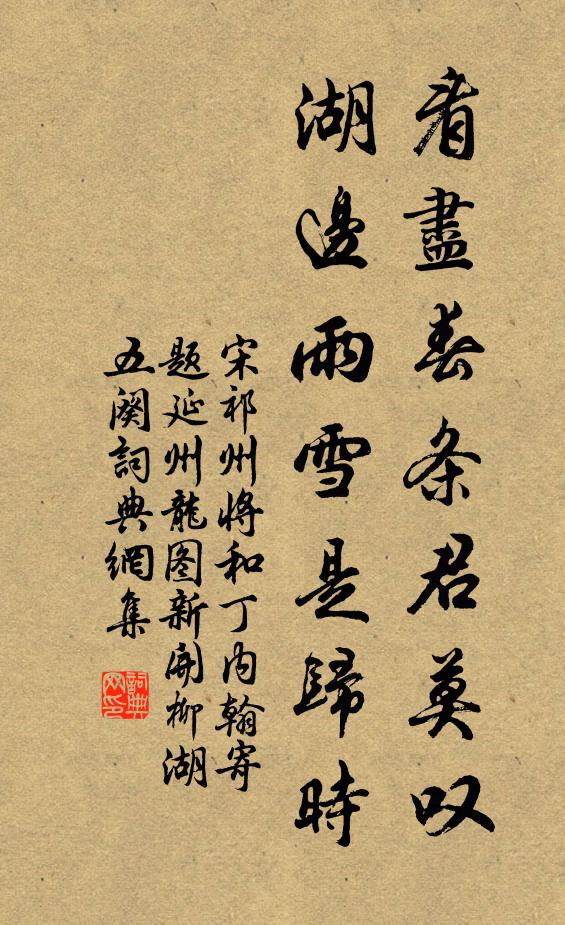 看盡春条君莫叹
湖邊雨雪是歸時
宋祁州将和丁内翰寄
题延州龍图新開柳湖
五阕詞典網集
詞典
网印